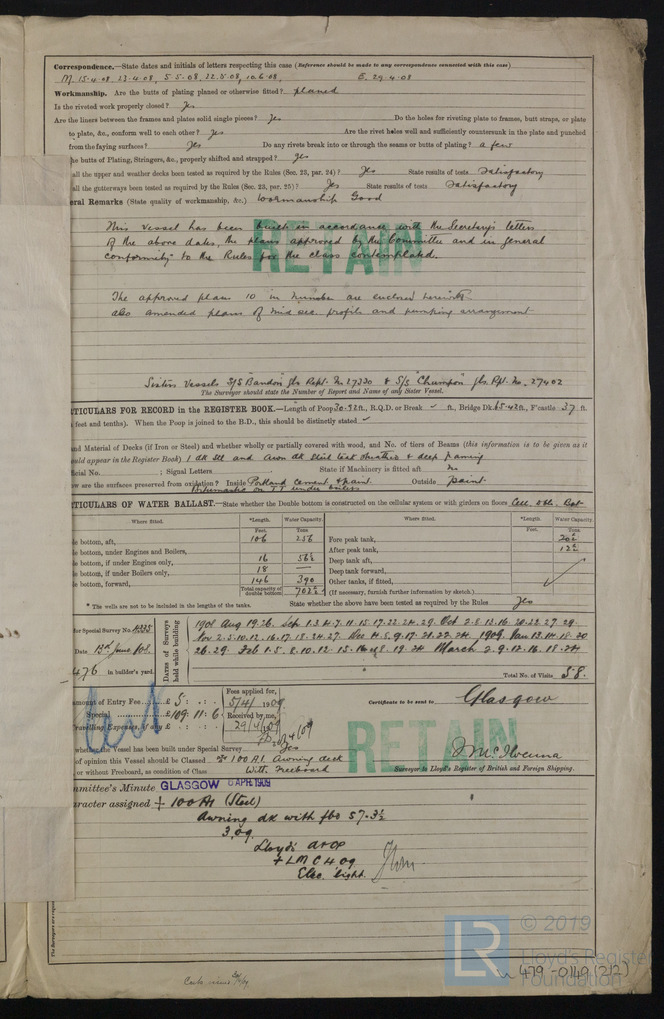 Correspondence.—State dates and initials of letters respecting this case (Reference should be made to any correspondence connected with this case)
M. 15.4.08, 23.4.08, 5.5.08, 22.5.08, 10.6.08, E. 29.4.08
Workmanship. Are the butts of plating planed or otherwise fitted? planed
Is the riveted work properly closed? Yes
Are the liners between the frames and plates solid single pieces? Yes Do the holes for riveting plate to frames, butt straps, or plate
to plate, &c., conform well to each other? Yes Are the rivet holes well and sufficiently countersunk in the plate and punched
from the faying surfaces? Yes Do any rivets break into or through the seams or butts of plating? a few
he butts of Plating, Stringers, &c., properly shifted and strapped? yes
all the upper and weather decks been tested as required by the Rules (Sec. 23, par. 24)? Yes State results of tests Satisfactory
all the gutterways been tested as required by the Rules (Sec. 23, par. 25)? Yes State results of tests Satisfactory
eral Remarks (State quality of workmanship, &c.) Workmanship Good
This vessel has been built in accordance with the Secretary's letters
of the above dates, the plans approved by the Committee and in general
conformity to the Rules for the class contemplated.
RETAIN
The approved plans 10 in number are enclosed herewith
also amended plans of mid sec profile and pumping arrangement
Sister Vessels S/S "Bandon" Gls Rept. No 27330 & S/S "Chumpon" Gls. Rpt. No. 27402
The Surveyor should state the Number of Report and Name of any Sister Vessel.
RTICULARS FOR RECORD in the REGISTER BOOK.—Length of Poop 30.92 ft., R.Q.D. or Break ft., Bridge Dk. 65.42 ft., F'castle 37 ft.
feet and tenths). When the Poop is joined to the B.D., this should be distinctly stated
and Material of Decks (if Iron or Steel) and whether wholly or partially covered with wood, and No. of tiers of Beams (this information is to be given as it
ould appear in the Register Book) 1 dk Stl and Awn dk Steel teak sheathed & deep framing
ficial No. ; Signal Letters State if Machinery is fitted aft No
ow are the surfaces preserved from oxidation? Inside Portland cement & paint. Outside paint.
Bitumastic on TT under boilers
RTICULARS OF WATER BALLAST.—State whether the Double bottom is constructed on the cellular system or with girders on floors Cell. dble. Bot
Where Sited. *Length. Water Capacity. Where Sited. *Length. Water Capacity.
Feet. Tons. Feet. Tons.
le bottom, aft, 106 256 Fore peak tank, 20½
le bottom, under Engines and Boilers, After peak tank, 12½
le bottom, if under Engines only, 16 56½ Deep tank aft,
le bottom, if under Boilers only, 18 — Deep tank forward,
le bottom, forward, 146 390 Other tanks, if fitted,
Total capacity of double bottom 702½ (If necessary, furnish further information by sketch.)
* The wells are not to be included in the lengths of the tanks. State whether the above have been tested as required by the Rules Yes
for Special Survey No. 4335
Date 13th June 1908
476 in builder's yard.
Dates of Surveys held while building
1908 Aug 19.26. Sep. 1.3.4.7.11.15.17.22.24.29. Oct 2.8.13.16.20.22.27.29.
Nov 2.5.10.12.16.17.18.24.27. Dec 14.8.9.17.20.22.24. 1909. Jan 13.14.18.20
26.29. Feb 1.5.8.10.12.15.16.18.19.24 March 2.9.12.16.18.24
Total No. of Visits 58.
amount of Entry Fee £ 5 : - : - Fees applied for,
Special £109 : 11 : 6 5/4/1909 Certificate to be sent to Glasgow
Travelling Expenses, if any £ : : Received by me,
29/4/09
Cert
whether the Vessel has been built under Special Survey Yes
of opinion this Vessel should be Classed +100A1. Awning deck
, or without Freeboard, as condition of Class With Freeboard
RETAIN
Surveyor to Lloyd's Register of British and Foreign Shipping.
mmittee's Minute GLASGOW 6 APR. 1909
aracter assigned +100A1 (Steel)
Awning dk with fbd 57.3½
3.09.
Lloyd's A&CP
+LMC 4 09
Elec. light.
© 2019
LR
Lloyd's Register
Foundation
W479-0149 (2/2)